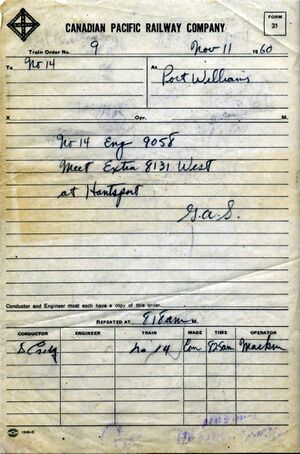 CANADIAN PACIFIC RAILWAY COMPANY
FORM 31
Train Order No. 9 Nov 11 1960
To No 14 At Port Williams
X Opr. M.
No 14 Eng 9058
Meet Extra 8131 West
at Hantsport
G.A.S.
Conductor and Engineer must each have a copy of this order.
REPEATED AT 818am
CONDUCTOR ENGINEER TRAIN MADE TIME OPERATOR
No 14 Com 825am